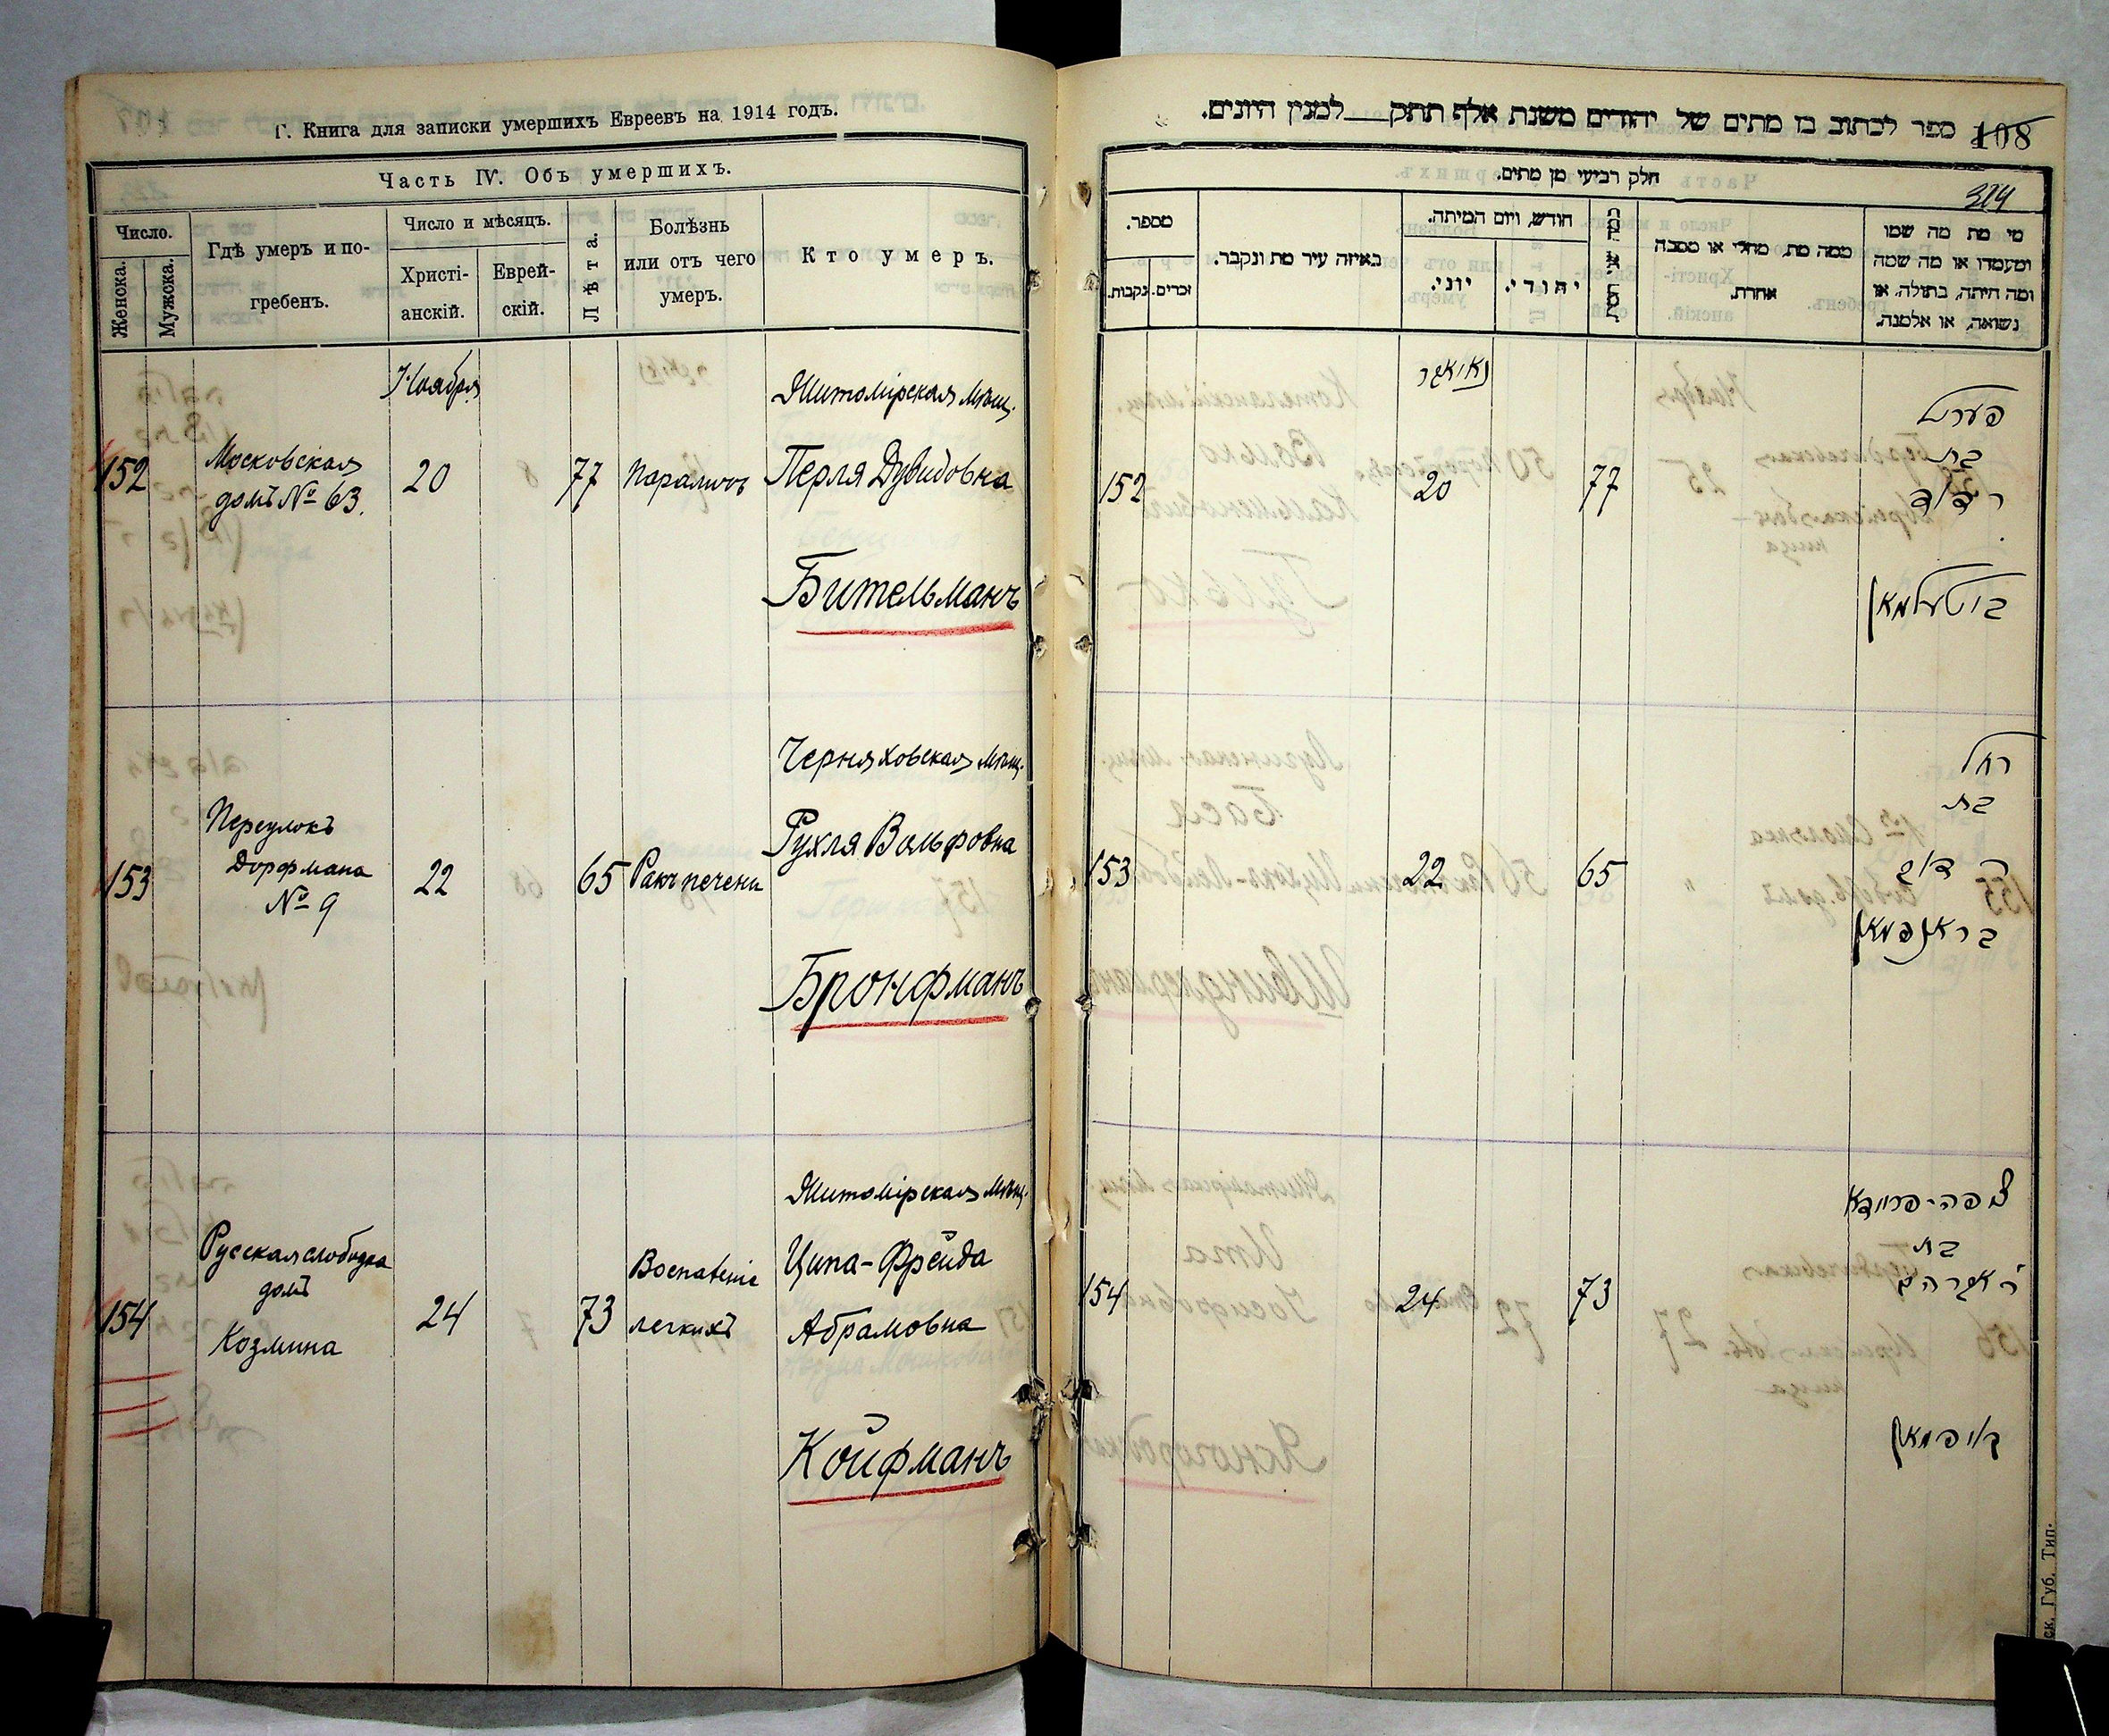 Г. Книга для записки умершихъ Евреевъ на 1914 годъ.
Часть IV. Объ умершихъ.
Число.
Женска.
Мужска.
Гдѣ умеръ и по-
гребенъ.
Число и мѣсяцъ.
Христі-
анскій.
Еврей-
скій.
Лѣта.
Болѣзнь
или отъ чего
умеръ.
Кто умеръ.
Ноября
152
Московская
домъ № 63.
20
77
Параличъ
Житомірская мѣщ.
Перля Дувидовна
Бительманъ
153
Переулокъ
Дорфмана
№ 9
22
65
Ракъ печени
Черняховская мѣщ.
Рухля Вольфовна
Бронфманъ
154
Русская слободка
домъ
Козмина
24
73
Воспаленіе
легкихъ
Житомірская мѣщ.
Ципа-Фрейда
Абрамовна
Койфманъ
108
ספר לכתוב בו מתים של יהודים משנת אלף תתק למנין היונים.
324
חלק רביעי מן מתים.
מי מת מה שמו
ומעמדו או מה שמה
ומה היתה, בתולה, או
נשואה, או אלמנה.
ממה מת, מחלי או מסבה
אחרת.
חודש, ויום המיתה.
יהודי.
יוני.
באיזה עיר מת ונקבר.
מספר.
זכרים.
נקבות.
נאיאבר
152
20
77
פערל
בת
ר דוד
ביטעלמאן
153
22
65
רחל
בת
בראנפמאן
154
24
73
צפה-פריידא
בת
ר אברהם
קויפמאן
ск. Губ. Тип.